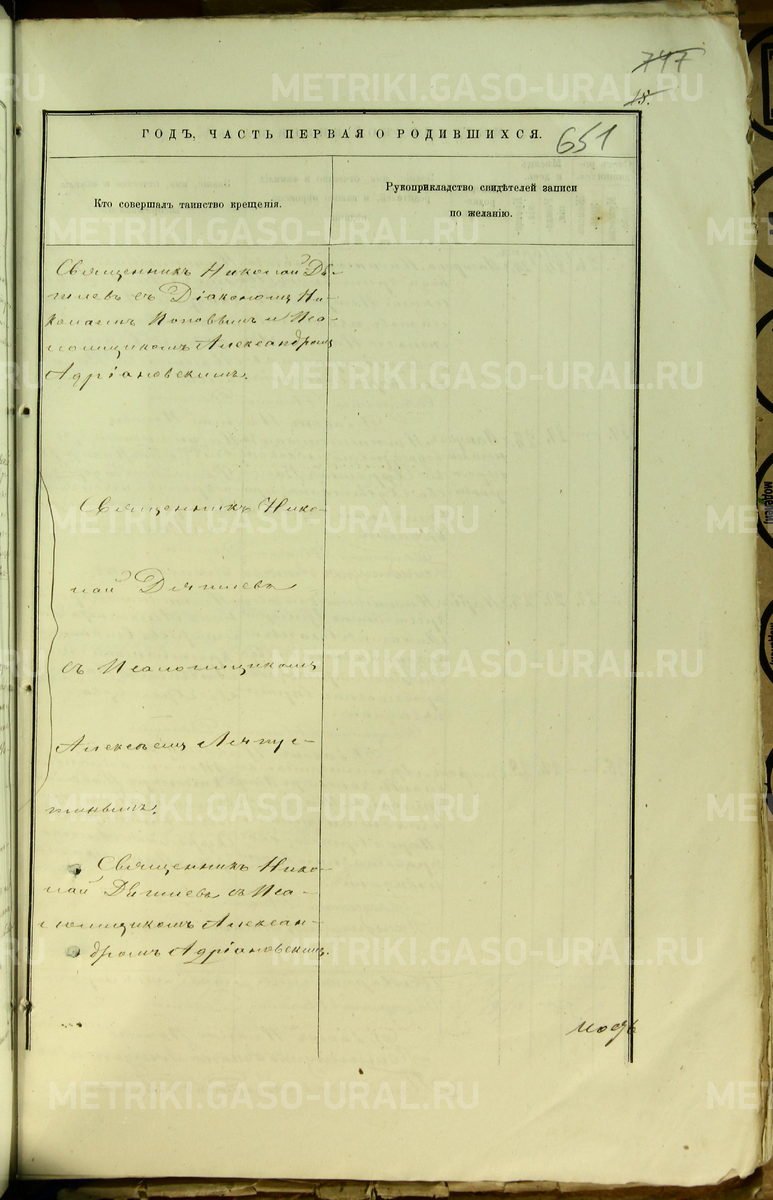 747
18.
651
ГОДЪ, ЧАСТЬ ПЕРВАЯ О РОДИВШИХСЯ.
Кто совершалъ таинство крещенія.
Рукоприкладство свидѣтелей записи
по желанію.
Священникъ Николай Дя-
гилевъ съ Діакономъ Ни-
колаемъ Поповымъ и Пса-
ломщикомъ Александромъ
Адріановскимъ.
Священникъ Нико-
лай Дягилевъ
съ Псаломщикомъ
Алексѣемъ
Священникъ Нико-
лай Дягилевъ съ Пса-
ломщикомъ Алексан-
дромъ Адріановскимъ.
METRIKI.GASO-URAL.RU